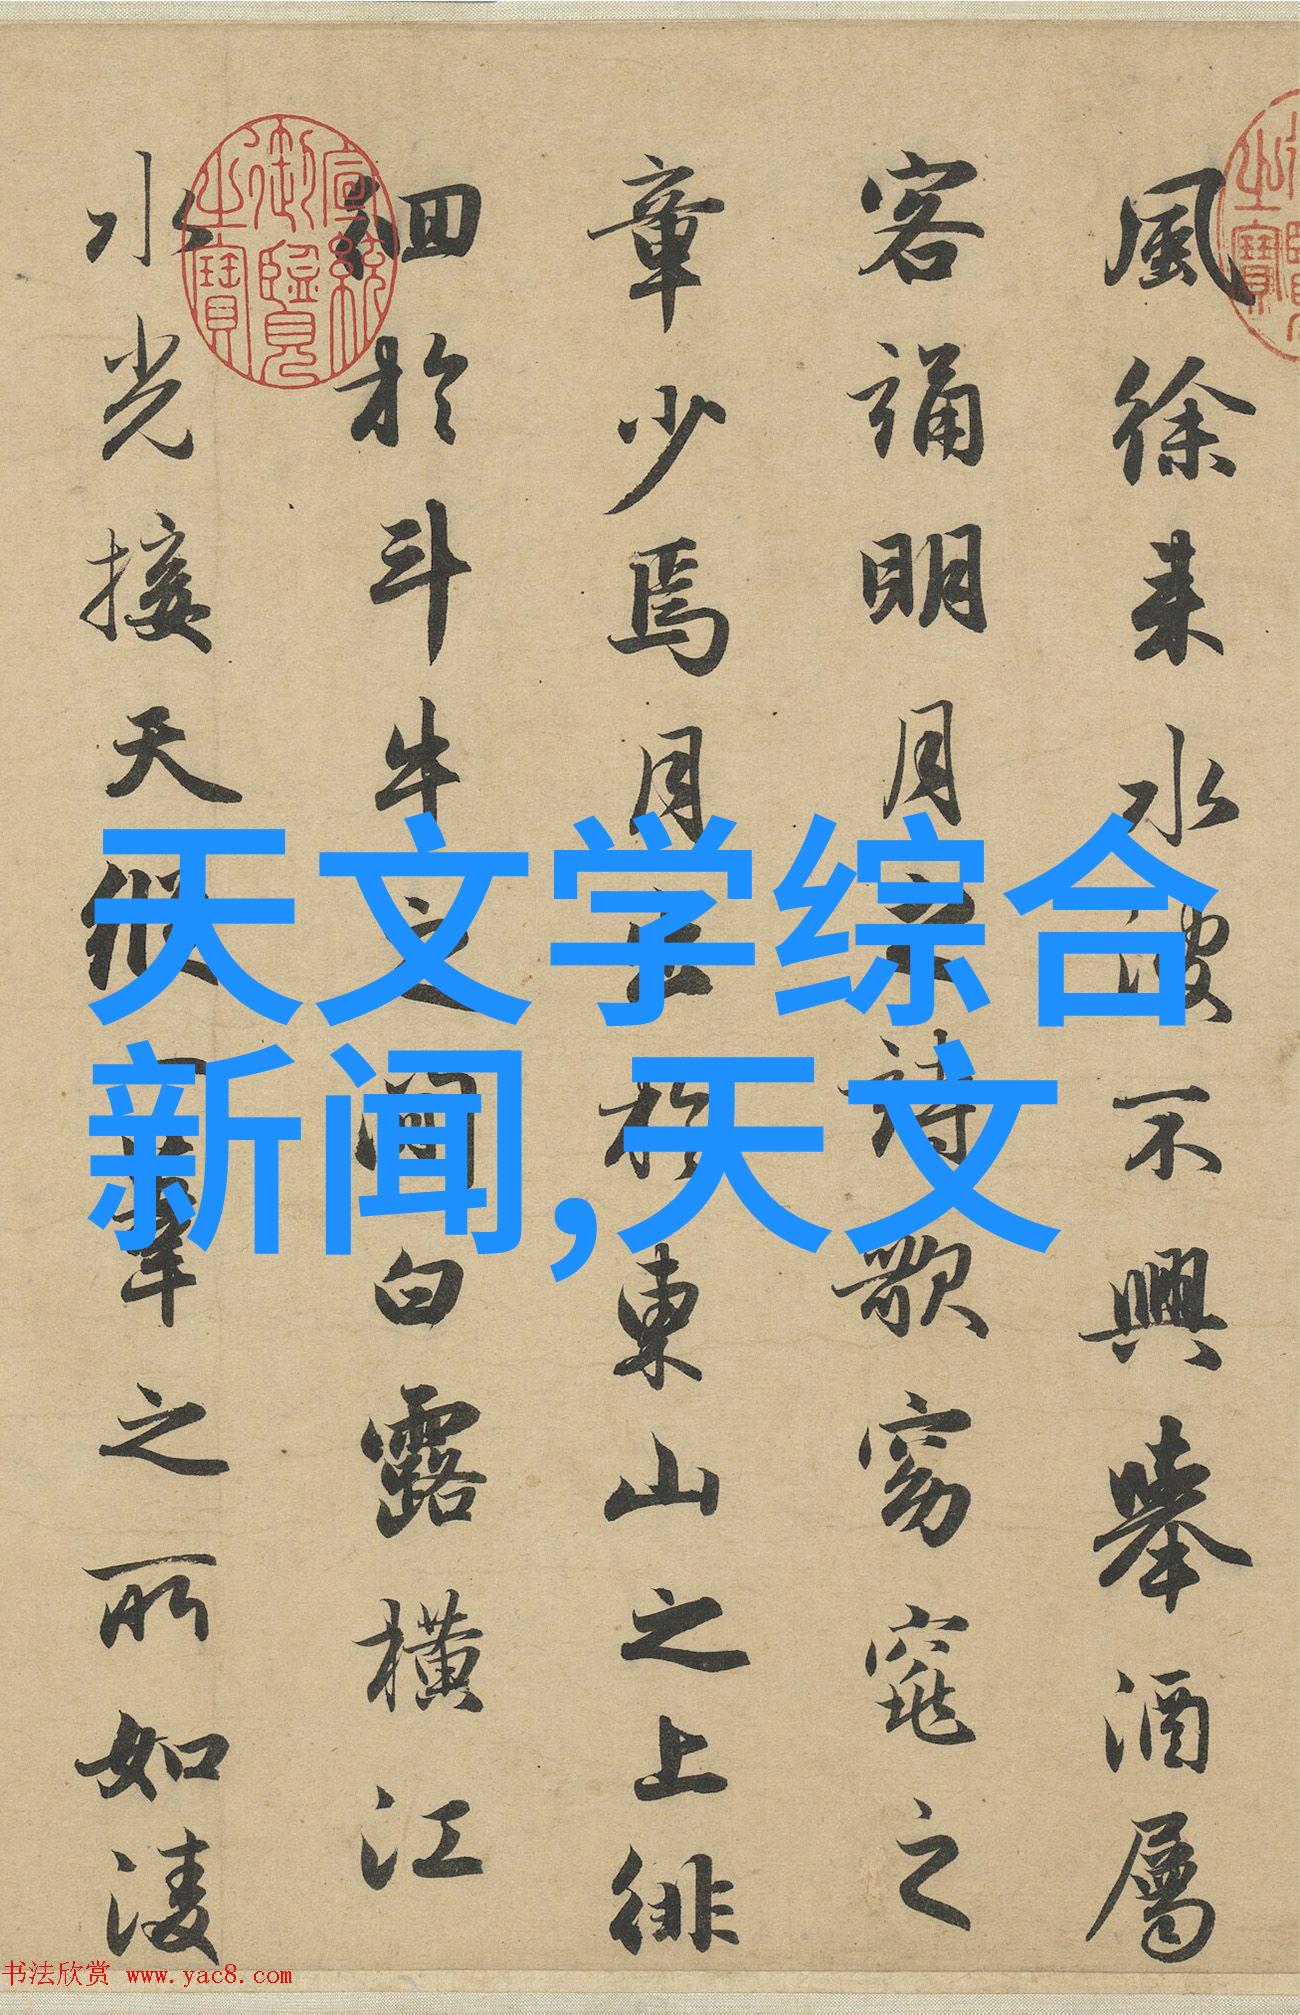 風徐来水波不興舉酒屬
客誦明月之詩歌窈窕之
章少焉月出於東山之上徘
徊於斗牛之間白露橫江
水光接天縱一葦之所如凌
宣統御覽之寶
天文学综合
新闻,天文
书法欣赏 www.yac8.com